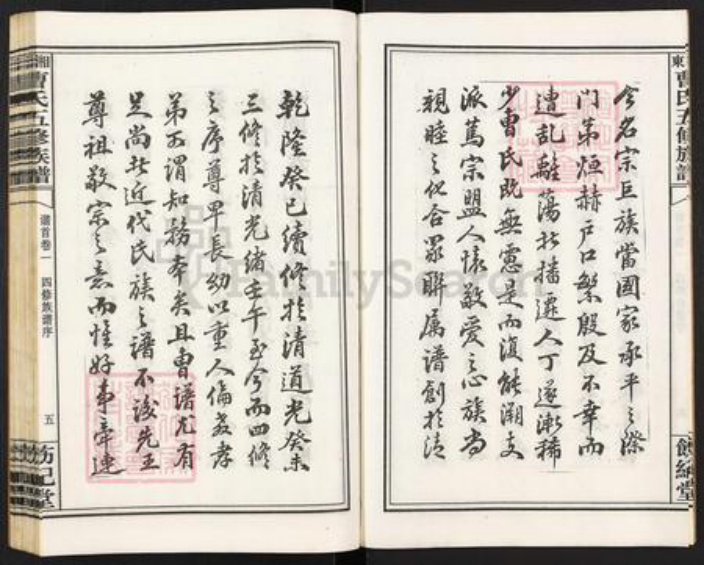 東曹氏五修族譜
今名宗巨族當國家承平之際
門第烜赫戶口繁殷及不幸而
遭亂離蕩析播遷人丁遂漸稀
少曹氏既無慮是而復能溯支
派篤宗盟人懷敬愛之心族尚
親睦之化合眾聯屬譜創於清
乾隆癸巳續修於清道光癸未
三修於清光緒壬午至今而四修
之序尊卑長幼以重人倫敦孝
弟可謂知務本矣且曹譜尤有
足尚者近代氏族之譜不談先王
尊祖敬宗之意而惟好事牽連
湘曹氏五修族譜
譜首卷一 四修族譜序
五
FamilySearch